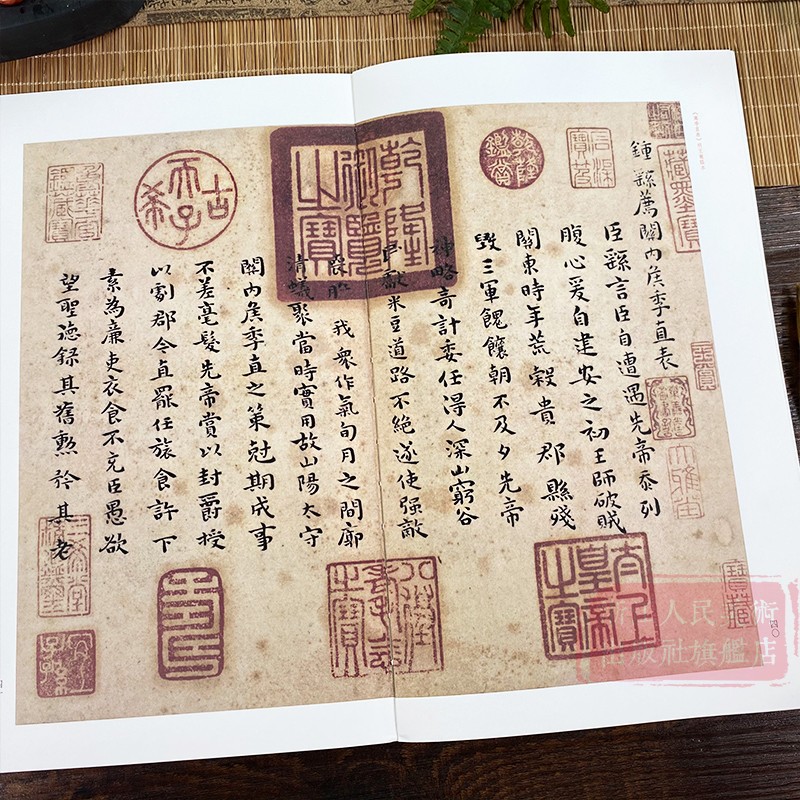 鍾繇薦關內侯季直表
臣繇言臣自遭遇先帝忝列
腹心爰自建安之初王師破賊
關東時年荒穀貴郡縣殘
毀三軍餽饟朝不及夕先帝
神略奇計委任得人深山窮谷
民獻米豆道路不絕遂使强敵
喪膽我衆作氣旬月之間廓
清蟻聚當時實用故山陽太守
關內侯季直之策尅期成事
不差毫髮先帝賞以封爵授
以劇郡今直罷任旅食許下
素為廉吏衣食不充臣愚欲
望聖德録其舊勳矜其老
乾隆御覽之寶
古希天子
乾隆鑑賞
太上皇帝之寶
四〇
人民美術
出版社旗艦店